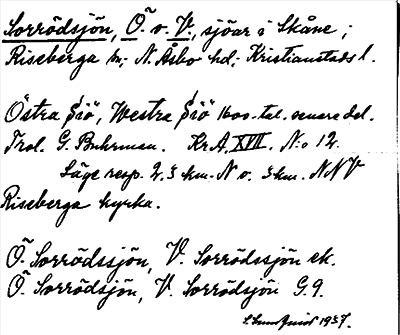 Sorrödsjön, Ö. o. V., sjöar i Skåne;
Riseberga sn, N. Åsbo hd, Kristianstads l.
Östra Siö, Westra Siö 1600-tal. senare del.
Trol. G. Buhrman. Kr.A. XVII. N:o 12.
Läge resp. 2.5 km. N o. 3 km. NNV
Riseberga kyrka.
Ö. Sorrödssjön, V. Sorrödssjön ek.
Ö. Sorrödsjön, V. Sorrödsjön G.9.
1937.